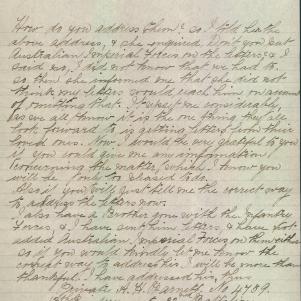 How do you address them? so I told her the
above address, & she enquired Don't you put
Australian Imperial Forces on the letters, & I
said no, I did not know that we had to
so then she informed me that she did not
think my letters would reach him on account
of omitting that. It upset me considerably,
as we all know it is the one thing they all
look forward to is getting letters from their
loved ones. Now I would be very grateful to you
if you could give me any information
concerning the matter, which I know you
will be only to pleased to do.
Also if you will just tell me the correct way
to address the letters now.
I also have a Brother gone with the Infantry
Forces, & I have sent him letters, & have not
added Australian Imperial Forces on them either
so if you would kindly let me know the
correct way to address his I will be more than
thankful. I have addressed his, thus
Private A. G. Bennett No 4789.